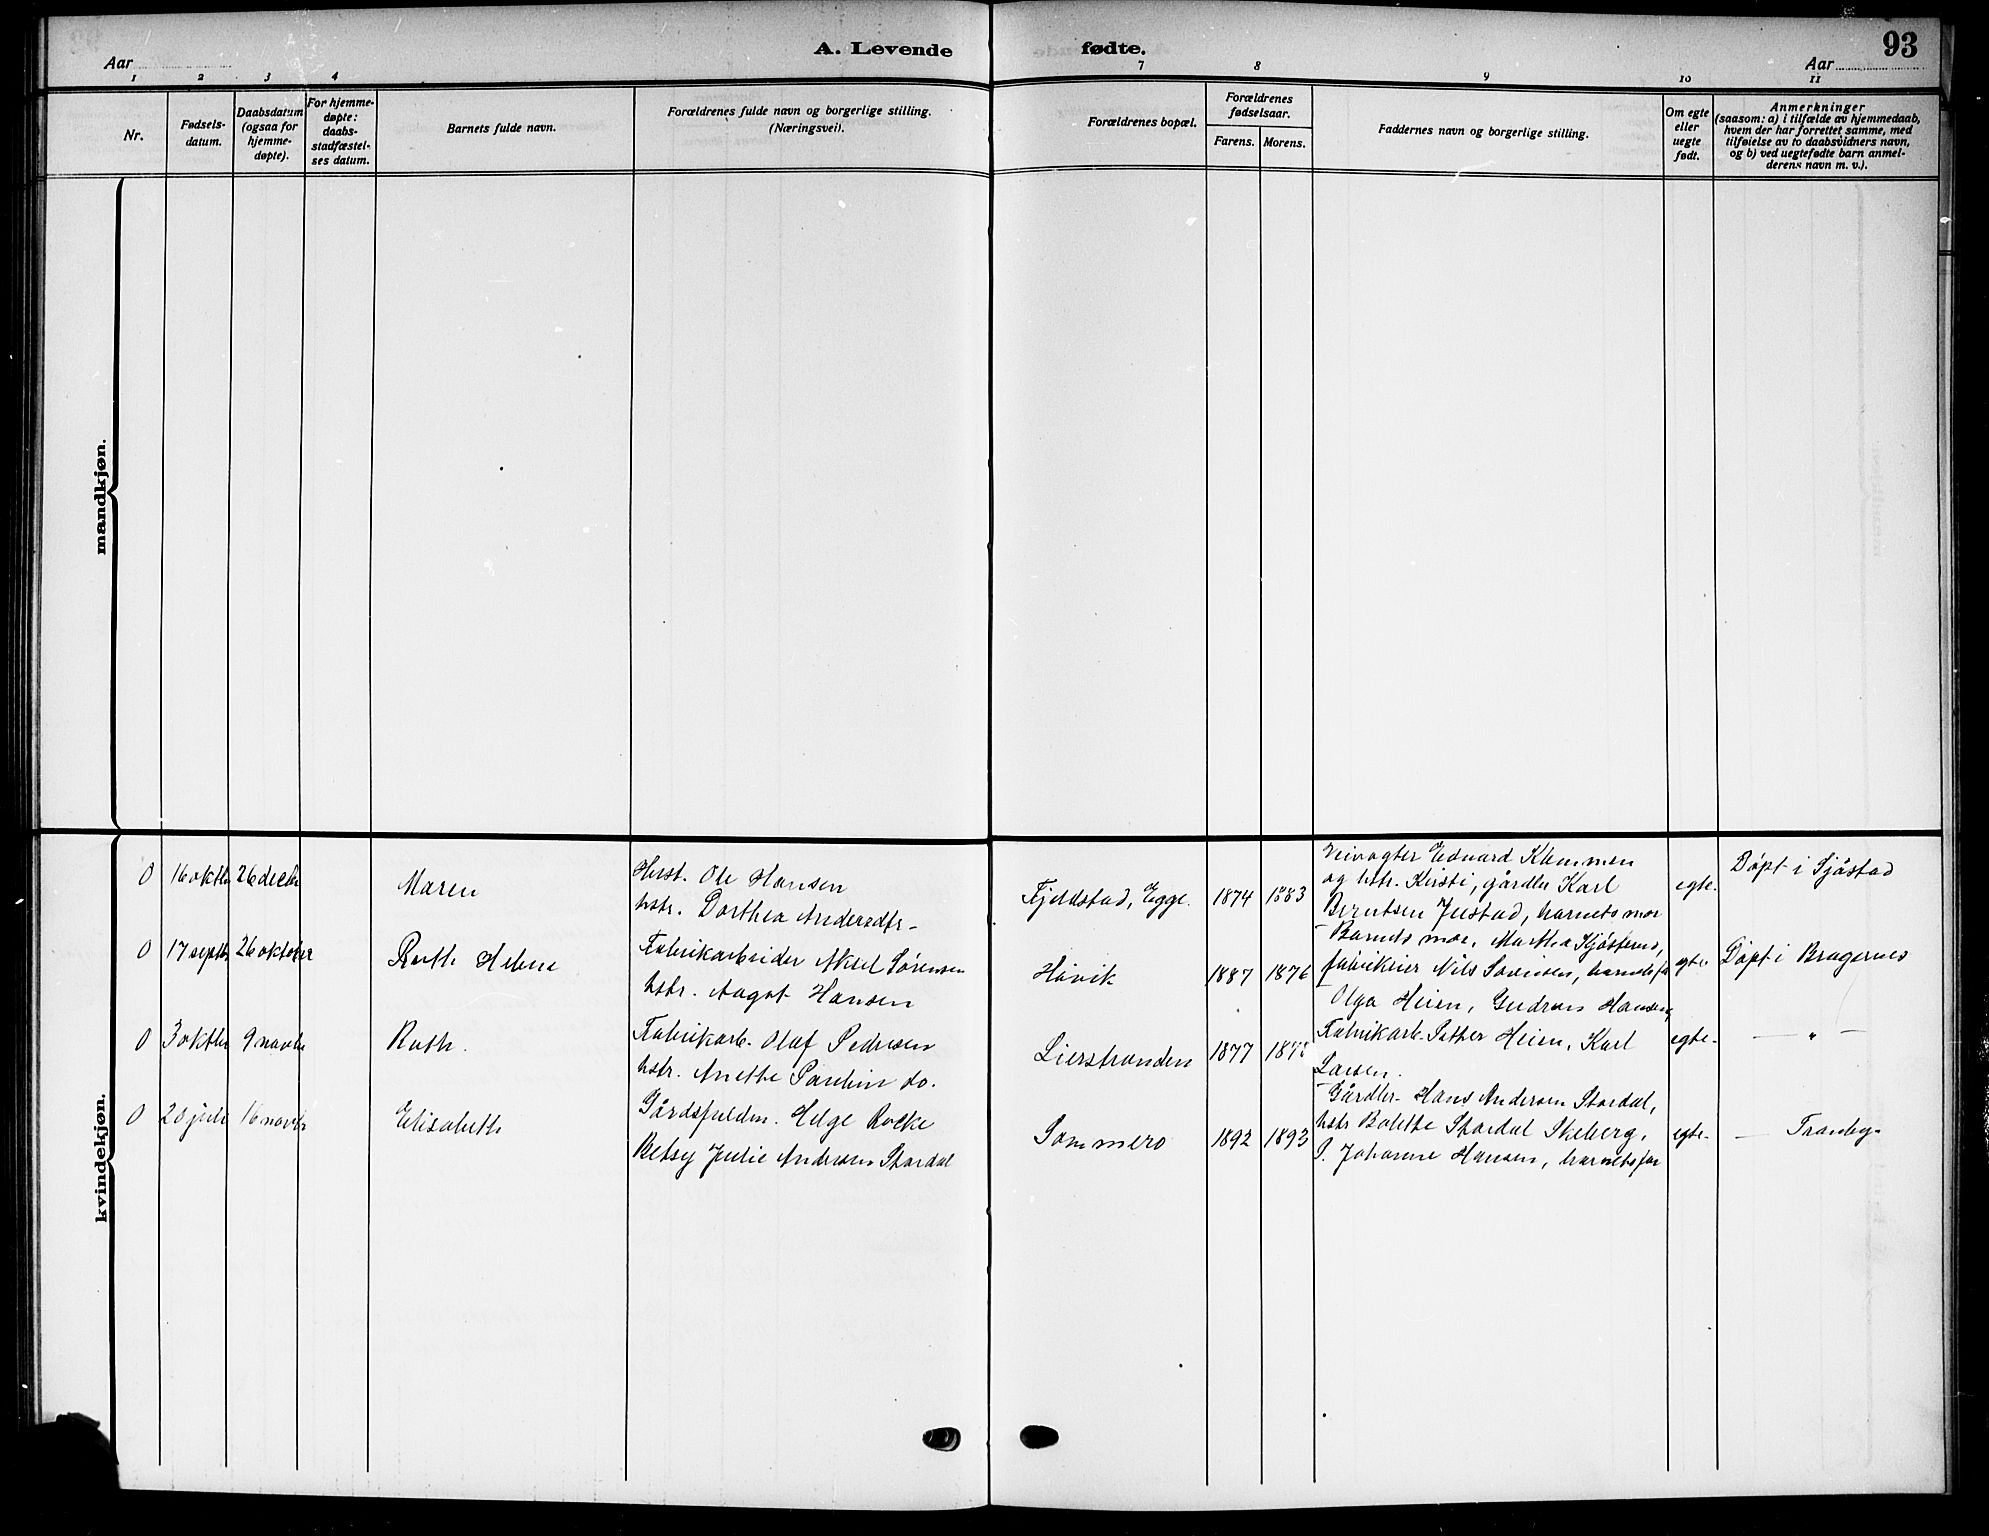 A. Levende fødte. 93
Aar Aar
1 2 3 4 7 8 9 10 11
Nr.
Fødsels-
datum.
Daabsdatum
(ogsaa for
hjemme-
døpte).
For hjemme-
døpte:
daabs-
stadfæstel-
ses datum.
Barnets fulde navn.
Forældrenes fulde navn og borgerlige stilling.
(Næringsvei).
Forældrenes bopæl.
Forældrenes
fødselsaar.
Farens. Morens.
Faddernes navn og borgerlige stilling.
Om egte
eller
uegte
født.
Anmerkninger
(saasom: a) i tilfælde av hjemmedaab,
hvem der har forrettet samme, med
tilføielse av to daabsvidners navn,
og b) ved uegtefødte barn anmel-
derens navn m. v.).
mandkjøn.
kvindekjøn.
0 16 oktbr 26 decbr
Maren
Ole Hansen
hstr. Dorthea Andersdtr-
Fjeldstad, Egge. 1874 1883
Edvard
og hstr. Kirsti, gårdbr Karl
Berntsen Justad, barnets mor
egte- Døpt i Sjåstad
0 17 septbr 26 oktober
Ruth Helene
Fabrikarbeider Aksel Sørensen
hstr. Aagot Hansen
Høvik 1887 1876
Barnets mor, Martha
Nils Sørensen, barnets far
Olga Heien, Gudrun Hansen,
egte- Døpt i Bragernes
0 3 oktbr 9 novbr
Ruth.
Fabrikarb. Olaf Pedersen
hstr. Anette Paulin do.
Lierstranden 1877
Fabrikarb. Petter Heien, Karl
Larsen.
egte- — " —
0 20 juli 16 novbr
Elisabeth
Gårdsfuldm. Helge Rocke
Betsy Julie Andersen Stordal
Sommero 1892 1893
Gårdbr- Hans Andersen Stordal,
hstr Bolette Stordal Skeberg,
Johanne Hansen, barnets far
egte- — Tranby-